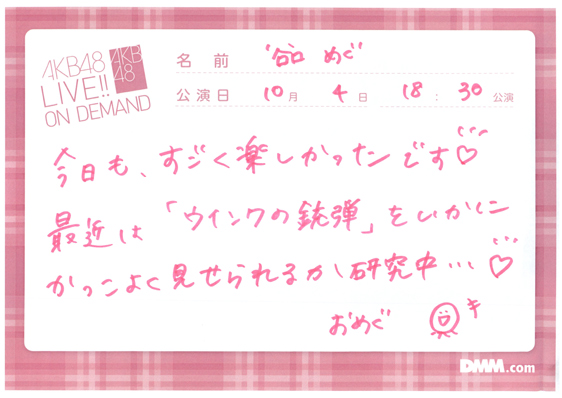 AKB48
LIVE!!
ON DEMAND
AKB
48
名前 谷口 めぐ
公演日 10月 4日 18:30公演
今日も、すごく楽しかったンです♡
最近は「ウインクの銃弾」をいかに
かっこよく見せられるか研究中…♡
おめぐ
DMM.com